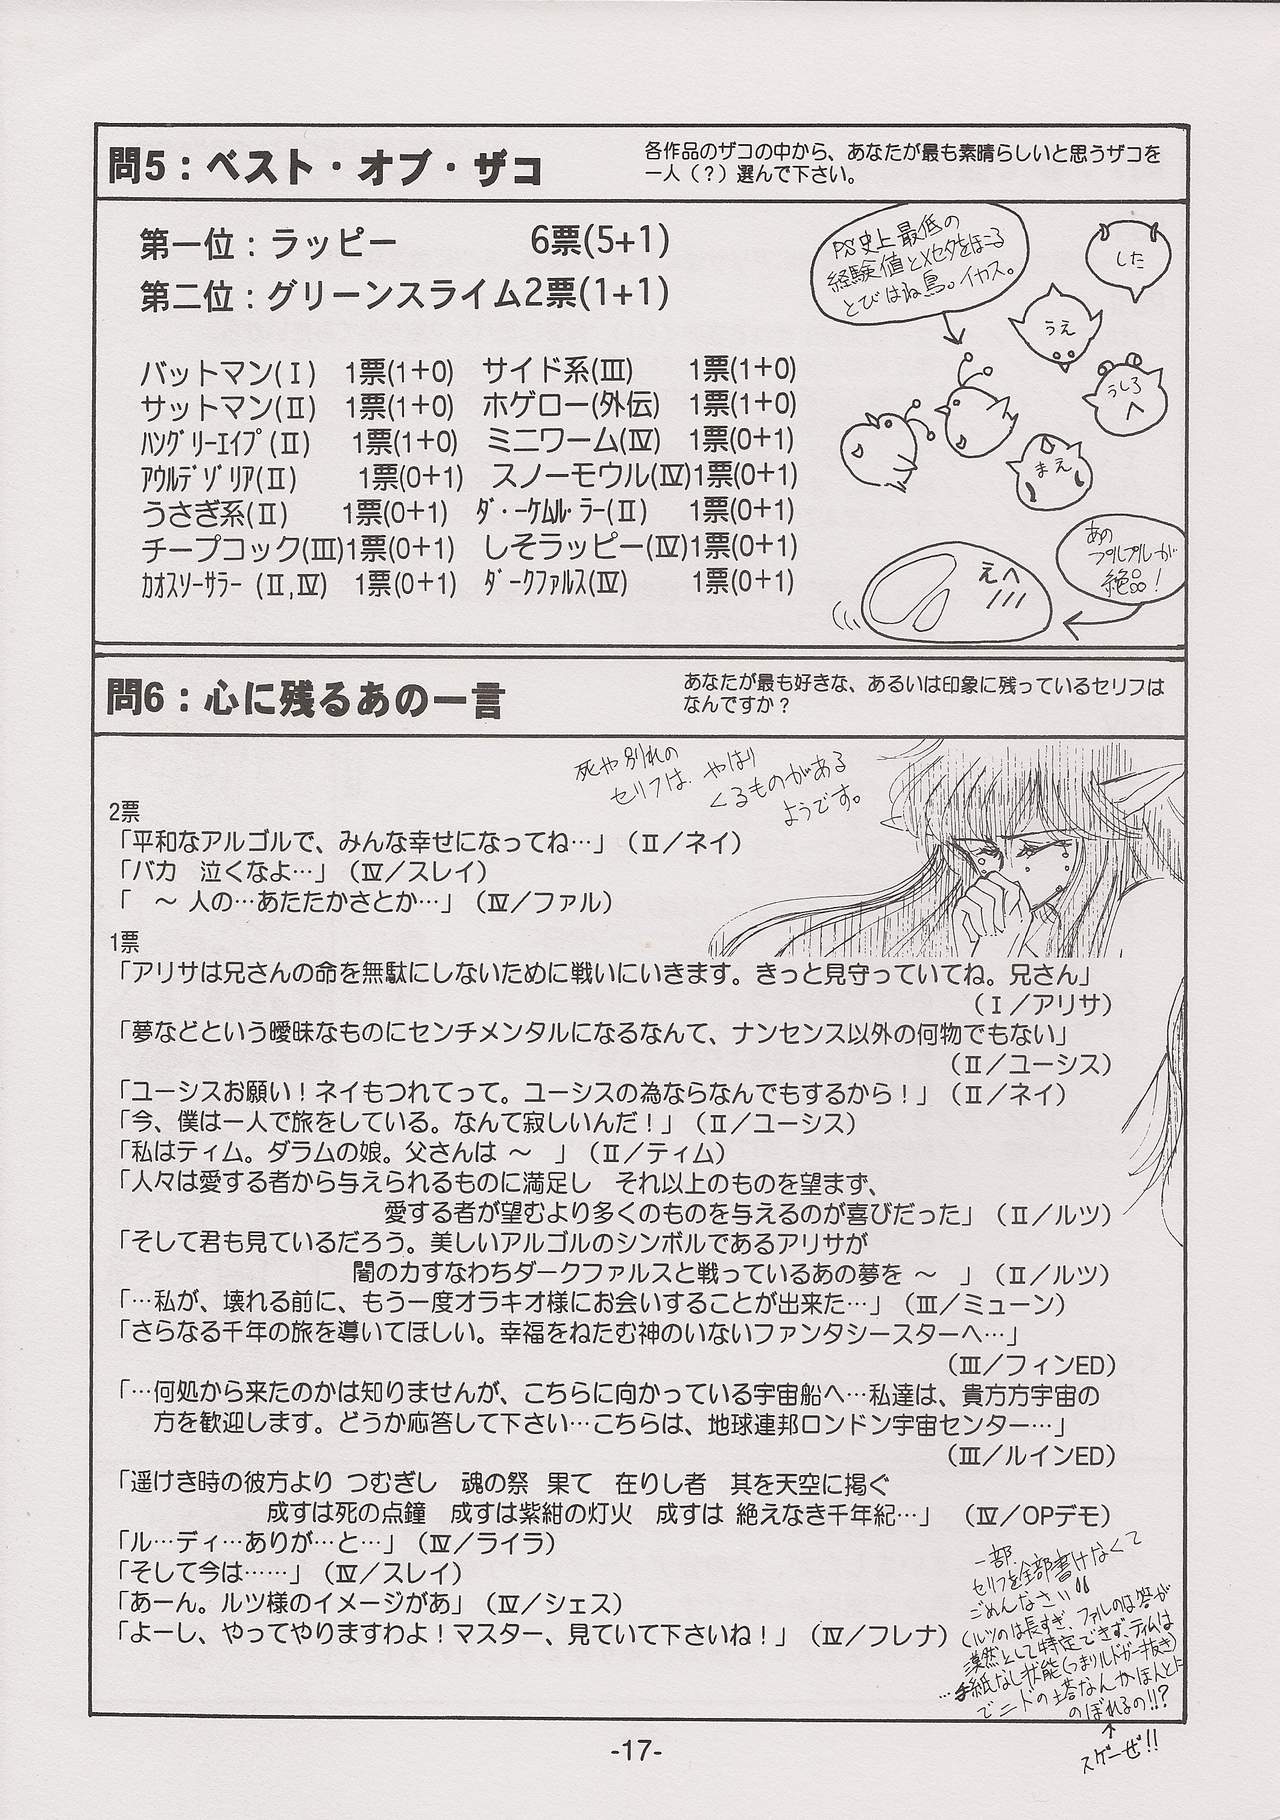 問5：ベスト・オブ・ザコ
各作品のザコの中から、あなたが最も素晴らしいと思うザコを
一人（？）選んで下さい。
第一位：ラッピー 6票(5+1)
第二位：グリーンスライム2票(1+1)
バットマン(Ⅰ) 1票(1+0) サイド系(Ⅲ) 1票(1+0)
サットマン(Ⅱ) 1票(1+0) ホゲロー(外伝) 1票(1+0)
ﾊﾝｸﾞﾘｰｴｲﾌﾟ(Ⅱ) 1票(1+0) ミニワーム(Ⅳ) 1票(0+1)
ｱｳﾙﾃﾞｿﾞﾘｱ(Ⅱ) 1票(0+1) スノーモウル(Ⅳ)1票(0+1)
うさぎ系(Ⅱ) 1票(0+1) ﾀﾞ･ｰｹﾑﾙ･ﾗｰ(Ⅱ) 1票(0+1)
チープコック(Ⅲ)1票(0+1) しそラッピー(Ⅳ)1票(0+1)
ｶｵｽｿｰｻﾗｰ (Ⅱ,Ⅳ) 1票(0+1) ﾀﾞｰｸﾌｧﾙｽ(Ⅳ) 1票(0+1)
PS史上最低の
経験値とメセタをほこる
とびはね鳥。イカス。
した
うえ
うしろ
へ
まえ
あの
プルプルが
絶品！
えへ
///
問6：心に残るあの一言
あなたが最も好きな、あるいは印象に残っているセリフは
なんですか？
死や別れの
セリフは、やはり
くるものがある
ようです。
2票
「平和なアルゴルで、みんな幸せになってね…」（Ⅱ／ネイ）
「バカ　泣くなよ…」（Ⅳ／スレイ）
「　～ 人の…あたたかさとか…」（Ⅳ／ファル）
1票
「アリサは兄さんの命を無駄にしないために戦いにいきます。きっと見守っていてね。兄さん」
（Ⅰ／アリサ）
「夢などという曖昧なものにセンチメンタルになるなんて、ナンセンス以外の何物でもない」
（Ⅱ／ユーシス）
「ユーシスお願い！ネイもつれてって。ユーシスの為ならなんでもするから！」（Ⅱ／ネイ）
「今、僕は一人で旅をしている。なんて寂しいんだ！」（Ⅱ／ユーシス）
「私はティム。ダラムの娘。父さんは ～　」（Ⅱ／ティム）
「人々は愛する者から与えられるものに満足し　それ以上のものを望まず、
愛する者が望むより多くのものを与えるのが喜びだった」（Ⅱ／ルツ）
「そして君も見ているだろう。美しいアルゴルのシンボルであるアリサが
闇の力すなわちダークファルスと戦っているあの夢を ～　」（Ⅱ／ルツ）
「…私が、壊れる前に、もう一度オラキオ様にお会いすることが出来た…」（Ⅲ／ミューン）
「さらなる千年の旅を導いてほしい。幸福をねたむ神のいないファンタシースターへ…」
（Ⅲ／フィンED）
「…何処から来たのかは知りませんが、こちらに向かっている宇宙船へ…私達は、貴方方宇宙の
方を歓迎します。どうか応答して下さい…こちらは、地球連邦ロンドン宇宙センター…」
（Ⅲ／ルインED）
「遥けき時の彼方より つむぎし　魂の祭 果て　在りし者　其を天空に掲ぐ
成すは死の点鐘　成すは紫紺の灯火　成すは 絶えなき千年紀…」　（Ⅳ／OPデモ）
「ル…ディ…ありが…と…」（Ⅳ／ライラ）
「そして今は……」（Ⅳ／スレイ）
「あーん。ルツ様のイメージがあ」（Ⅳ／シェス）
「よーし、やってやりますわよ！マスター、見ていて下さいね！」（Ⅳ／フレナ）
一部、
セリフを全部書けなくて
ごめんなさい!!
(ルツのは長すぎ、ファルのは答が
漠然として特定できず、ティムは
…手紙なし状態(つまりルドガー抜き)
でニドの塔なんかほんとに
のぼれるの!!?
↑
スゲーぜ!!
-17-